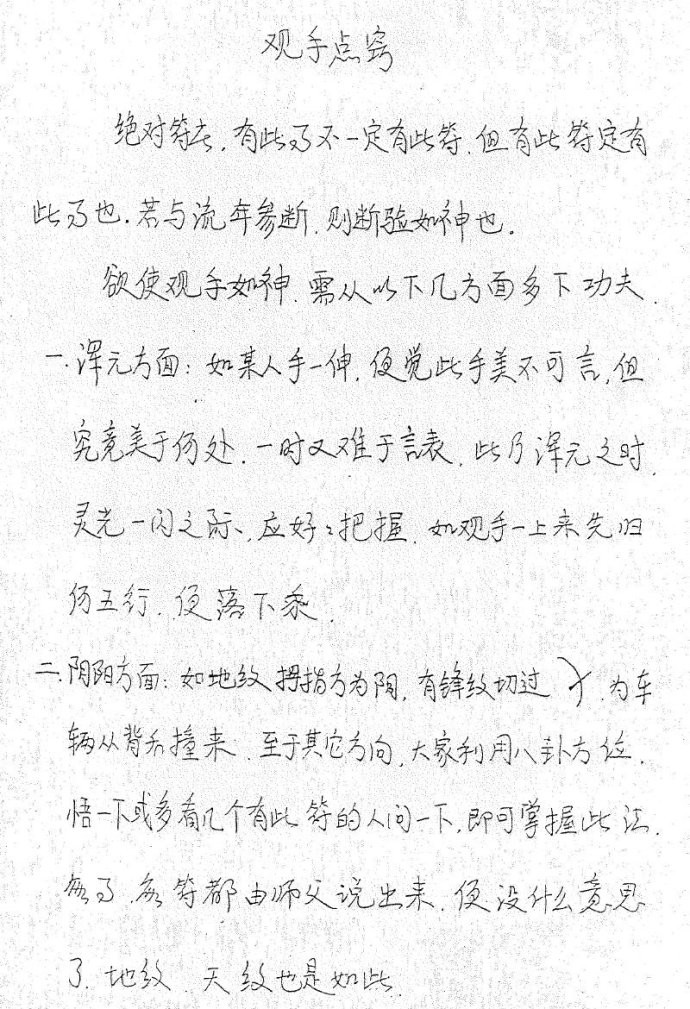 观手点窍
绝对符在,有此了不一定有此符.但有此符定有
此了也.若与流年参断.则断验如神也.
欲使观手如神.需从以下几方面多下功夫.
一.浑元方面:如某人手一伸,便觉此手美不可言,但
究竟美于何处.一时又难于言表.此乃浑元之时.
灵光一闪之际、应好:把握.如观手一上来先归
何五行.便落下乘.
二.阴阳方面:如地纹拇指方为阴,有锋纹切过 为车
辆从背后撞来.至于其它方向,大家利用八卦方位.
悟一下或多看几个有此符的人问一下,即可掌握此法.
每了.每符都由师父说出来.便没什么意思
了.地纹.天纹也是如此.